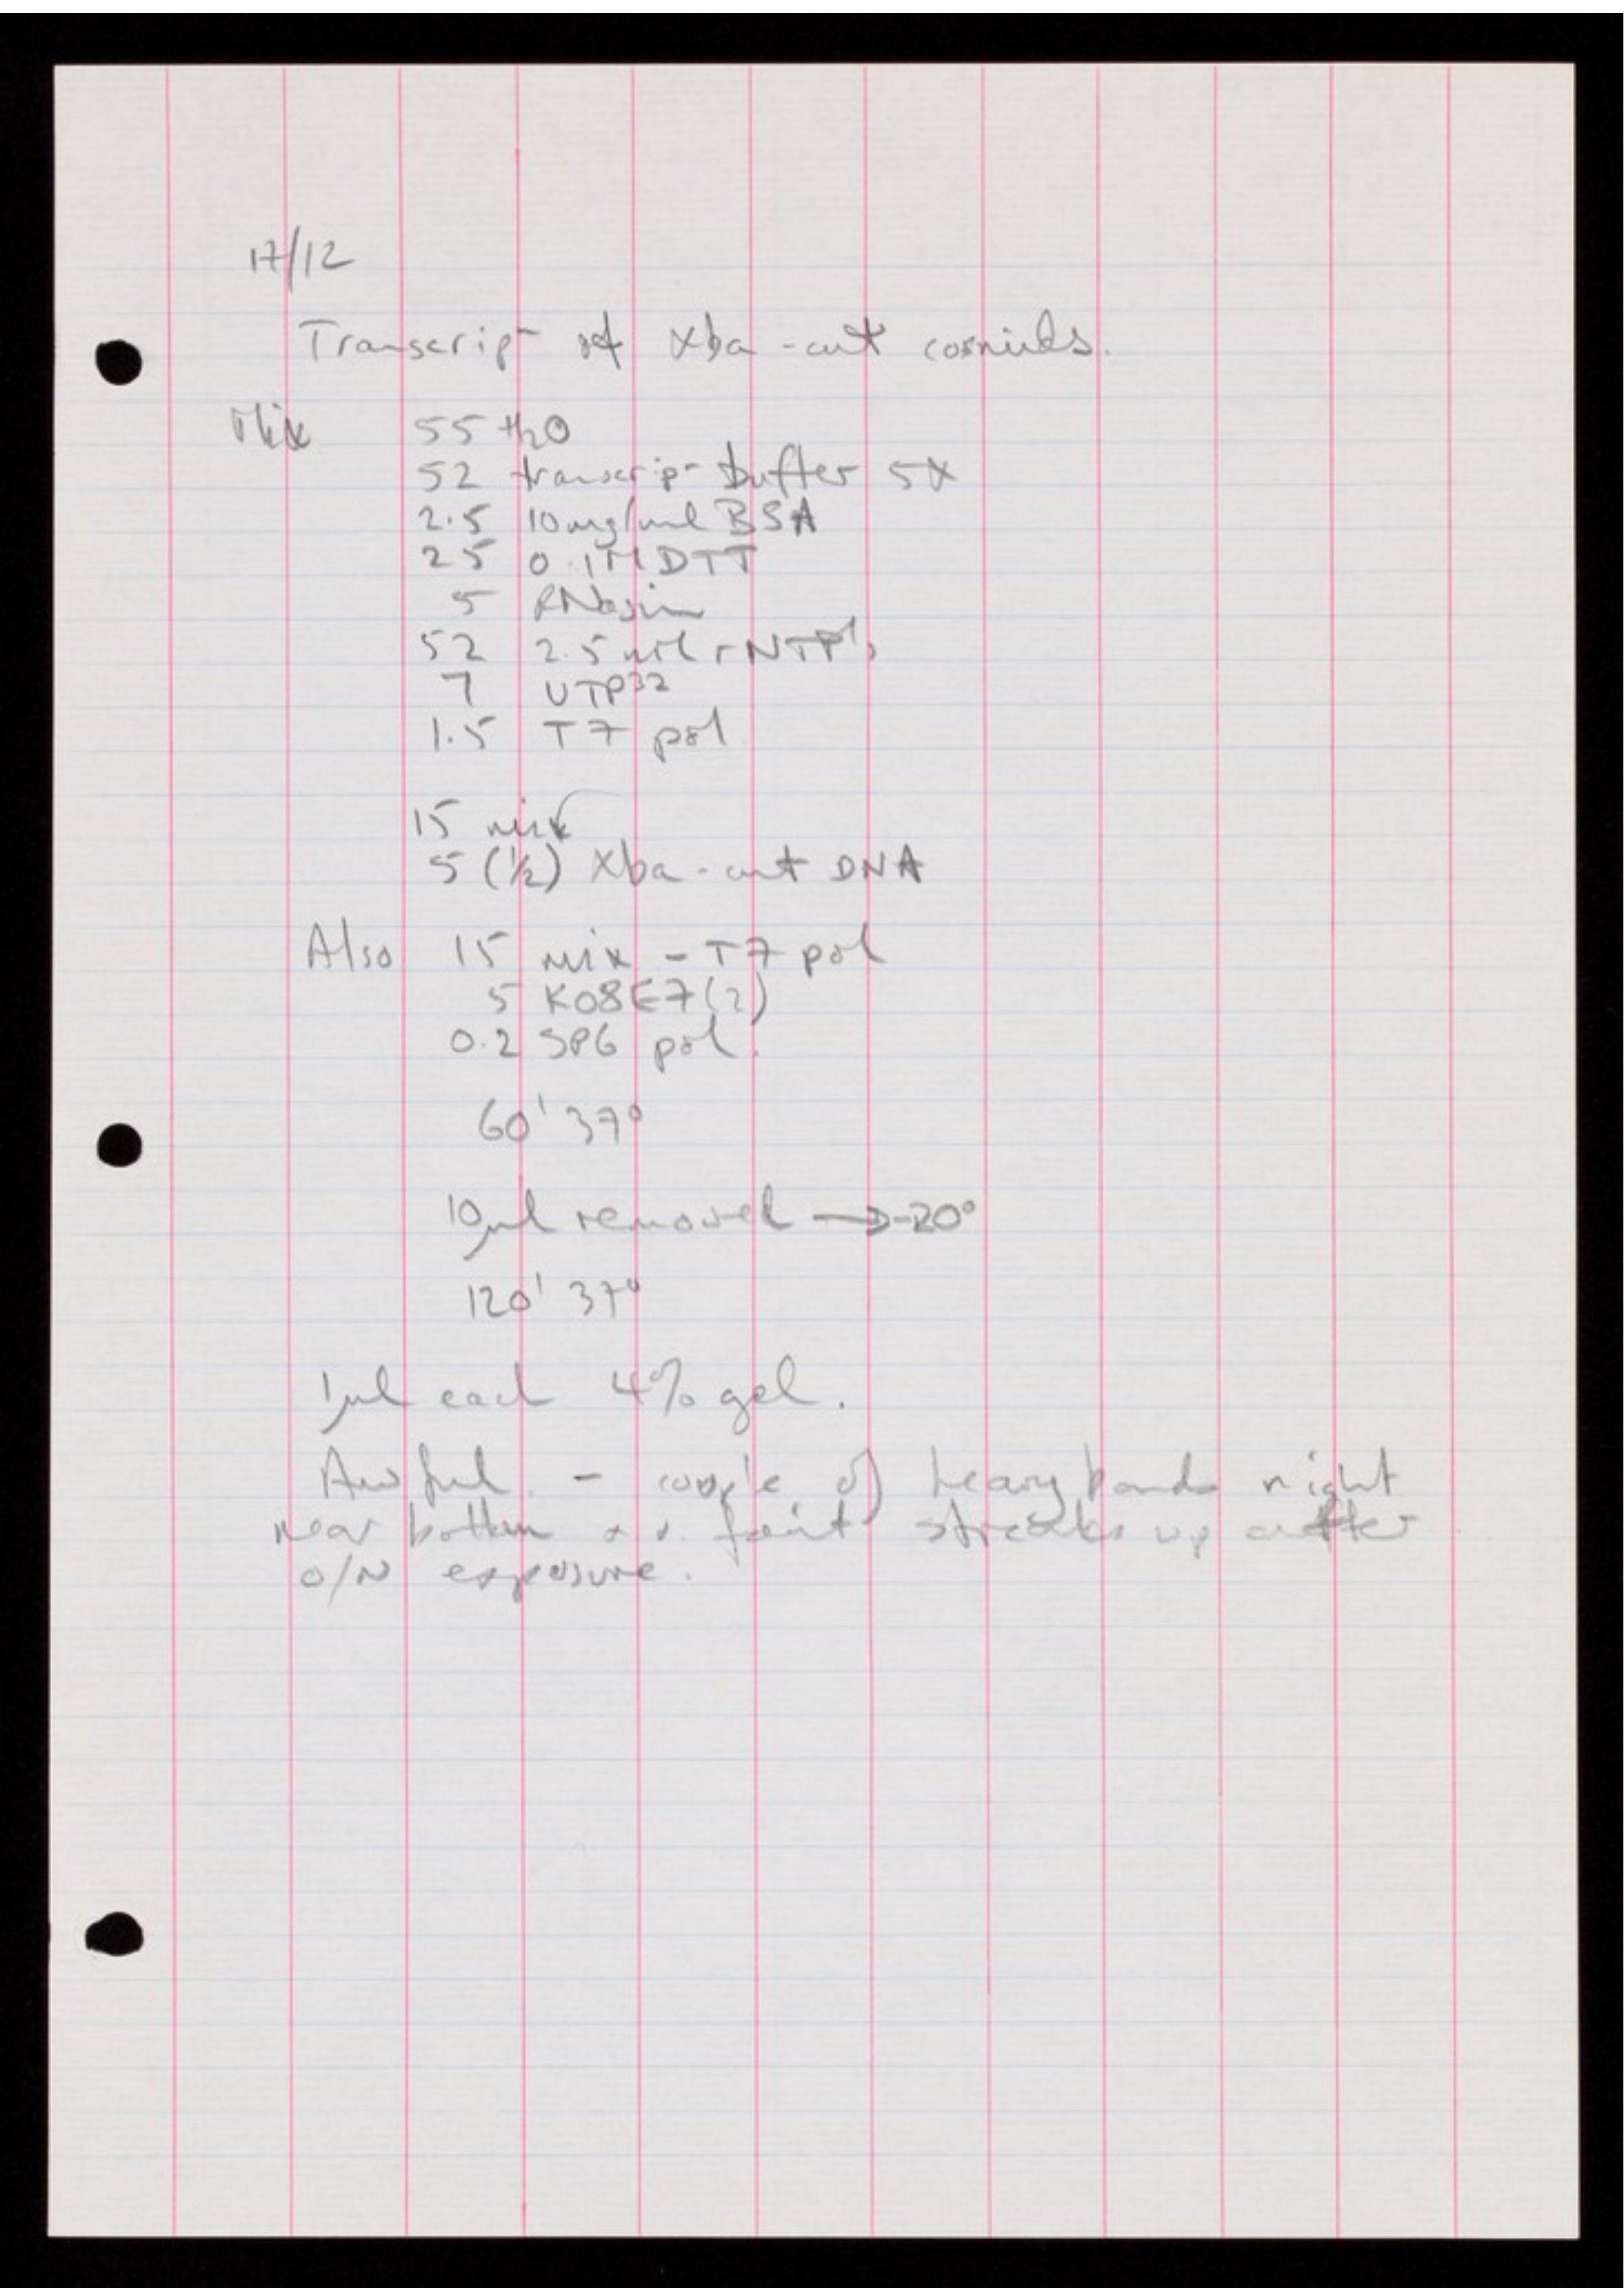 17/12
Transcrip- of Xba-cut cosmids.
Mix 55 H2O
52 transcrip- buffer 5X
2.5 10mg/ml BSA
25 0.1M DTT
5 RNasin
52 2.5mM rNTP's
7 UTP32
1.5 T7 pol
15 mix
5 (½) Xba-cut DNA
Also 15 mix - T7 pol
5 K08E7(2)
0.2 SP6 pol.
60' 37°
10µl removed → -20°
120' 37°
1µl each 4% gel.
Awful - couple of heavy bands right
near bottom + v. faint streaks up after
O/N exposure.